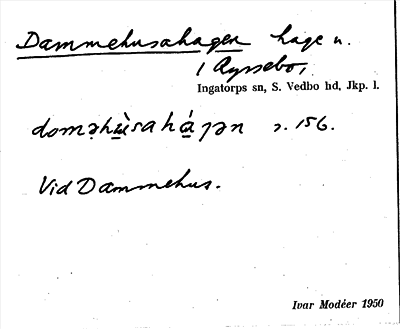 Dammehusahagen hage u.
i Ryssebo,
Ingatorps sn, S. Vedbo hd, Jkp. l.
doməhùsahágən 2. 156.
Vid Dammehus.
Ivar Modéer 1950